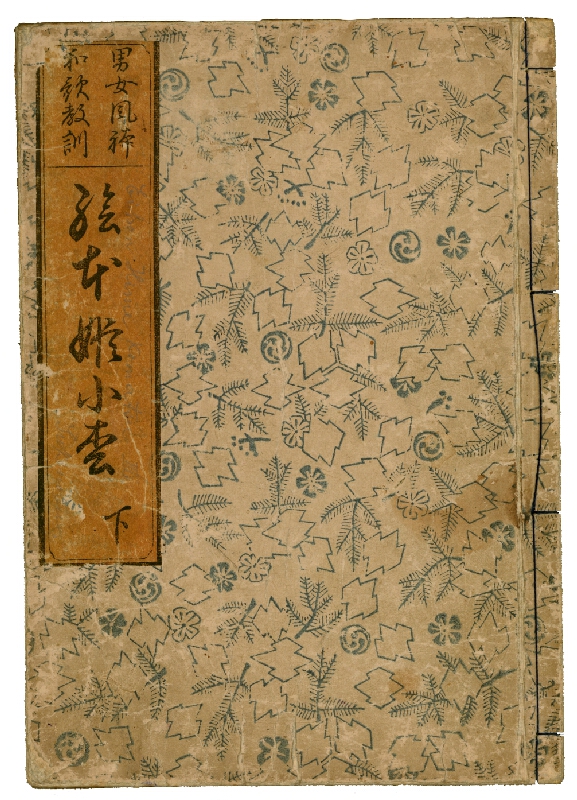 男女風
和歌教訓
絵本姫小枩
下